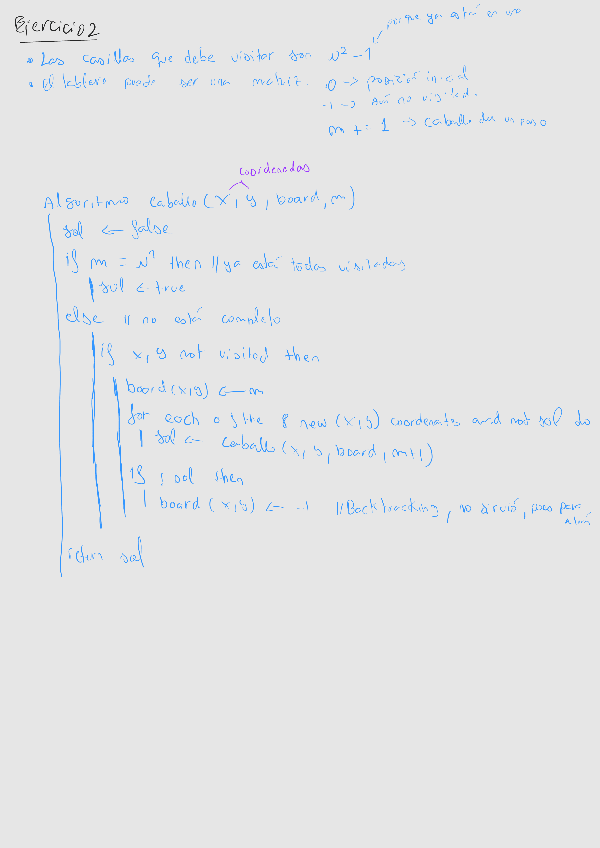 Ejercicio 2
porque ya está en una
• Las casillas que debe visitar son N² - 1
• El tablero puede ser una matriz. 0 -> posición inicial
-1 -> Aún no visitad.
m += 1 -> Caballo da un paso
coordenadas
Algoritmo caballo (x, y, board, m)
sol <- false
if m = N² then // ya está todas visitadas
sol <- true
else // no está completo
if x, y not visited then
board(x,y) <- m
for each of the 8 new (x,y) coordenates and not sol do
sol <- caballo (x, y, board, m+1)
if ! sol then
board (x,y) <- -1 // Backtracking, no sirvió, pues para atrás
return sol